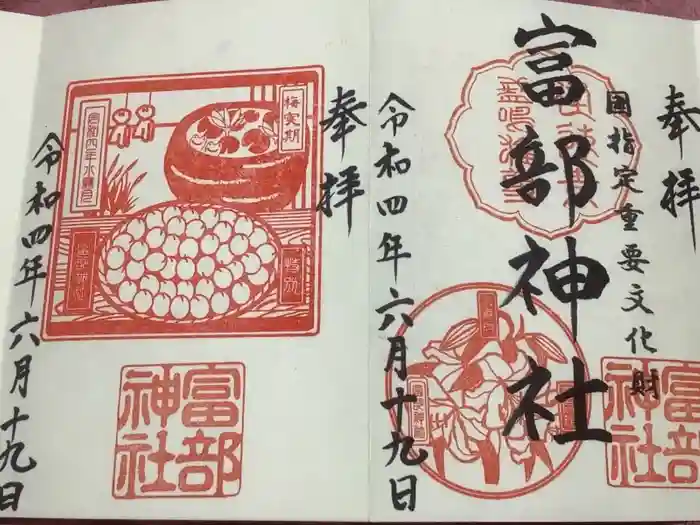 奉拝
国指定重要文化財
富部神社
令和四年六月十九日
富部
神社
奉拝
梅実期
令和四年水無月
特別
富部神社
令和四年六月十九日
富部
神社